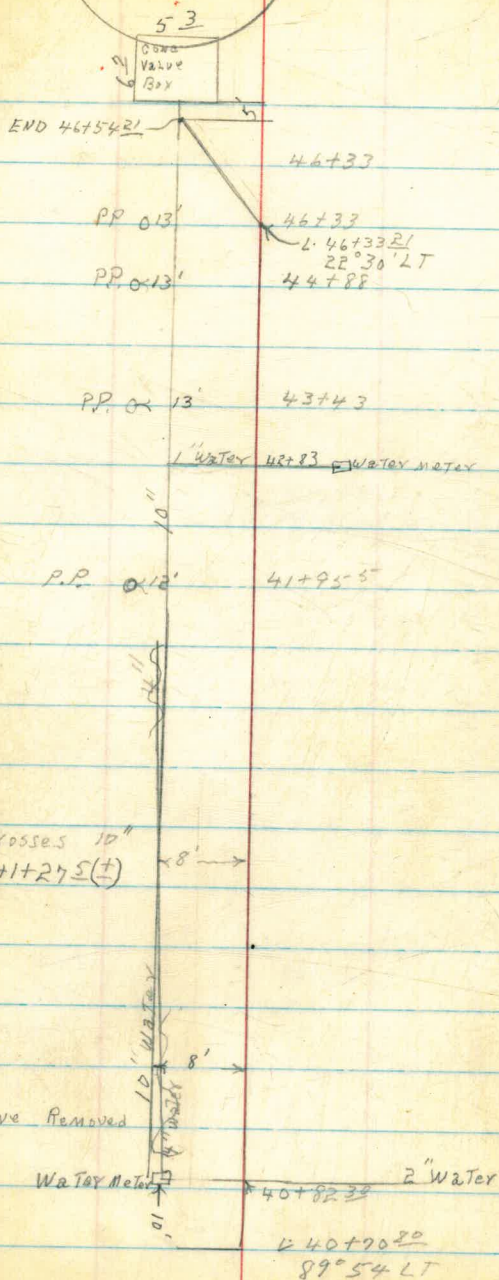 5 3
6 2
Conc
Valve
Box
5'
END 46+54 21
46+33
P.P. 13'
46+33
L. 46+33 21
22°30' LT
P.P. 13'
44+88
P.P. 13'
43+43
1" Water 42+83 Water meter
10"
P.P. 12'
41+95 5
4"
osses 10"
41+27 5 (±)
8'
10" Water
8'
4" Water
ve Removed
Water Meter
2" Water
40+82 30
10'
L 40+70 80
89°54 LT